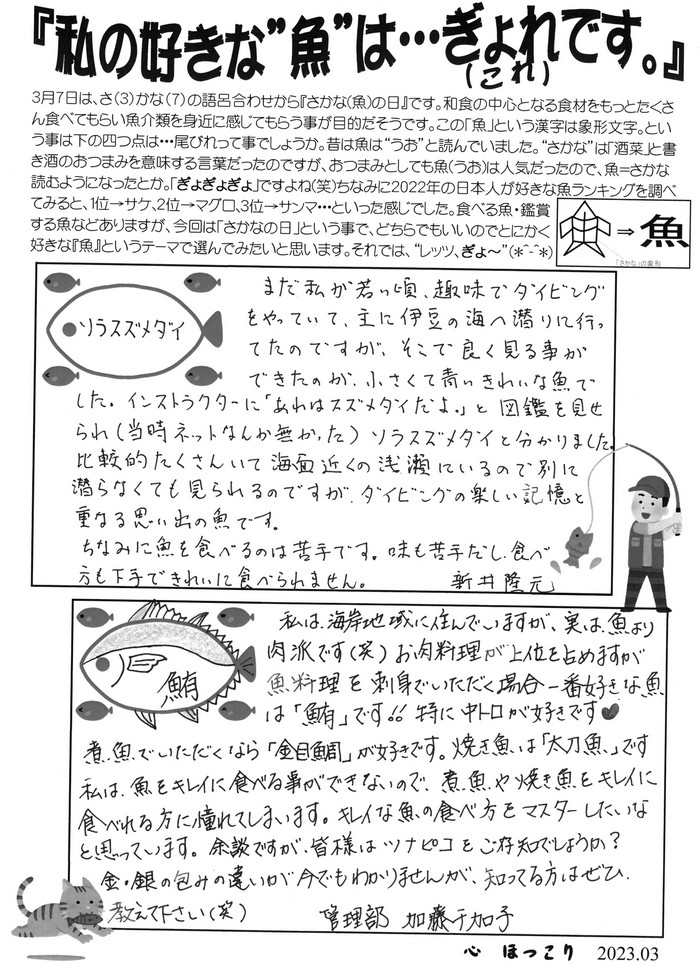 『私の好きな"魚"は…ぎょれです。』
(これ)
3月7日は、さ(3)かな(7)の語呂合わせから『さかな(魚)の日』です。和食の中心となる食材をもっとたくさ
ん食べてもらい魚介類を身近に感じてもらう事が目的だそうです。この「魚」という漢字は象形文字。とい
う事は下の四つ点は…尾びれって事でしょうか。昔は魚は"うお"と読んでいました。"さかな"は「酒菜」と書
き酒のおつまみを意味する言葉だったのですが、おつまみとしても魚(うお)は人気だったので、魚=さかな
読むようになったとか。「ぎょぎょぎょ」ですよね(笑)ちなみに2022年の日本人が好きな魚ランキングを調べ
てみると、1位→サケ、2位→マグロ、3位→サンマ…といった感じでした。食べる魚・鑑賞
する魚などありますが、今回は「さかなの日」という事で、どちらでもいいのでとにかく
好きな『魚』というテーマで選んでみたいと思います。それでは、"レッツ、ぎょ〜"(*^-^*)
⇒ 魚
「さかな」の象形
ソラスズメダイ
まだ私が若い頃、趣味でダイビング
をやっていて、主に伊豆の海へ潜りに行っ
てたのですが、そこで良く見る事が
できたのが、小さくて青いきれいな魚で
した。インストラクターに「あれはスズメダイだよ。」と図鑑を見せ
られ(当時ネットなんか無かった)ソラスズメダイと分かりました。
比較的たくさんいて海面近くの浅瀬にいるので別に
潜らなくても見られるのですが、ダイビングの楽しい記憶と
重なる思い出の魚です。
ちなみに魚を食べるのは苦手です。味も苦手だし、食べ
方も下手できれいに食べられません。
新井隆元
鮪
私は、海岸地域に住んでいますが、実は、魚より
肉派です(笑)お肉料理が上位を占めますが
魚料理を刺身でいただく場合一番好きな魚
は「鮪」です!!特に中トロが好きです♥
煮魚でいただくなら「金目鯛」が好きです。焼き魚は「太刀魚」です
私は、魚をキレイに食べる事ができないので、煮魚や焼き魚をキレイに
食べれる方に憧れてしまいます。キレイな魚の食べ方をマスターしたいな
と思っています。余談ですが、皆様はツナピコをご存知でしょうか?
金・銀の包みの違いが今でもわかりませんが、知ってる方はぜひ、
教えて下さい(笑)
管理部 加藤千加子
心 ほっこり 2023.03